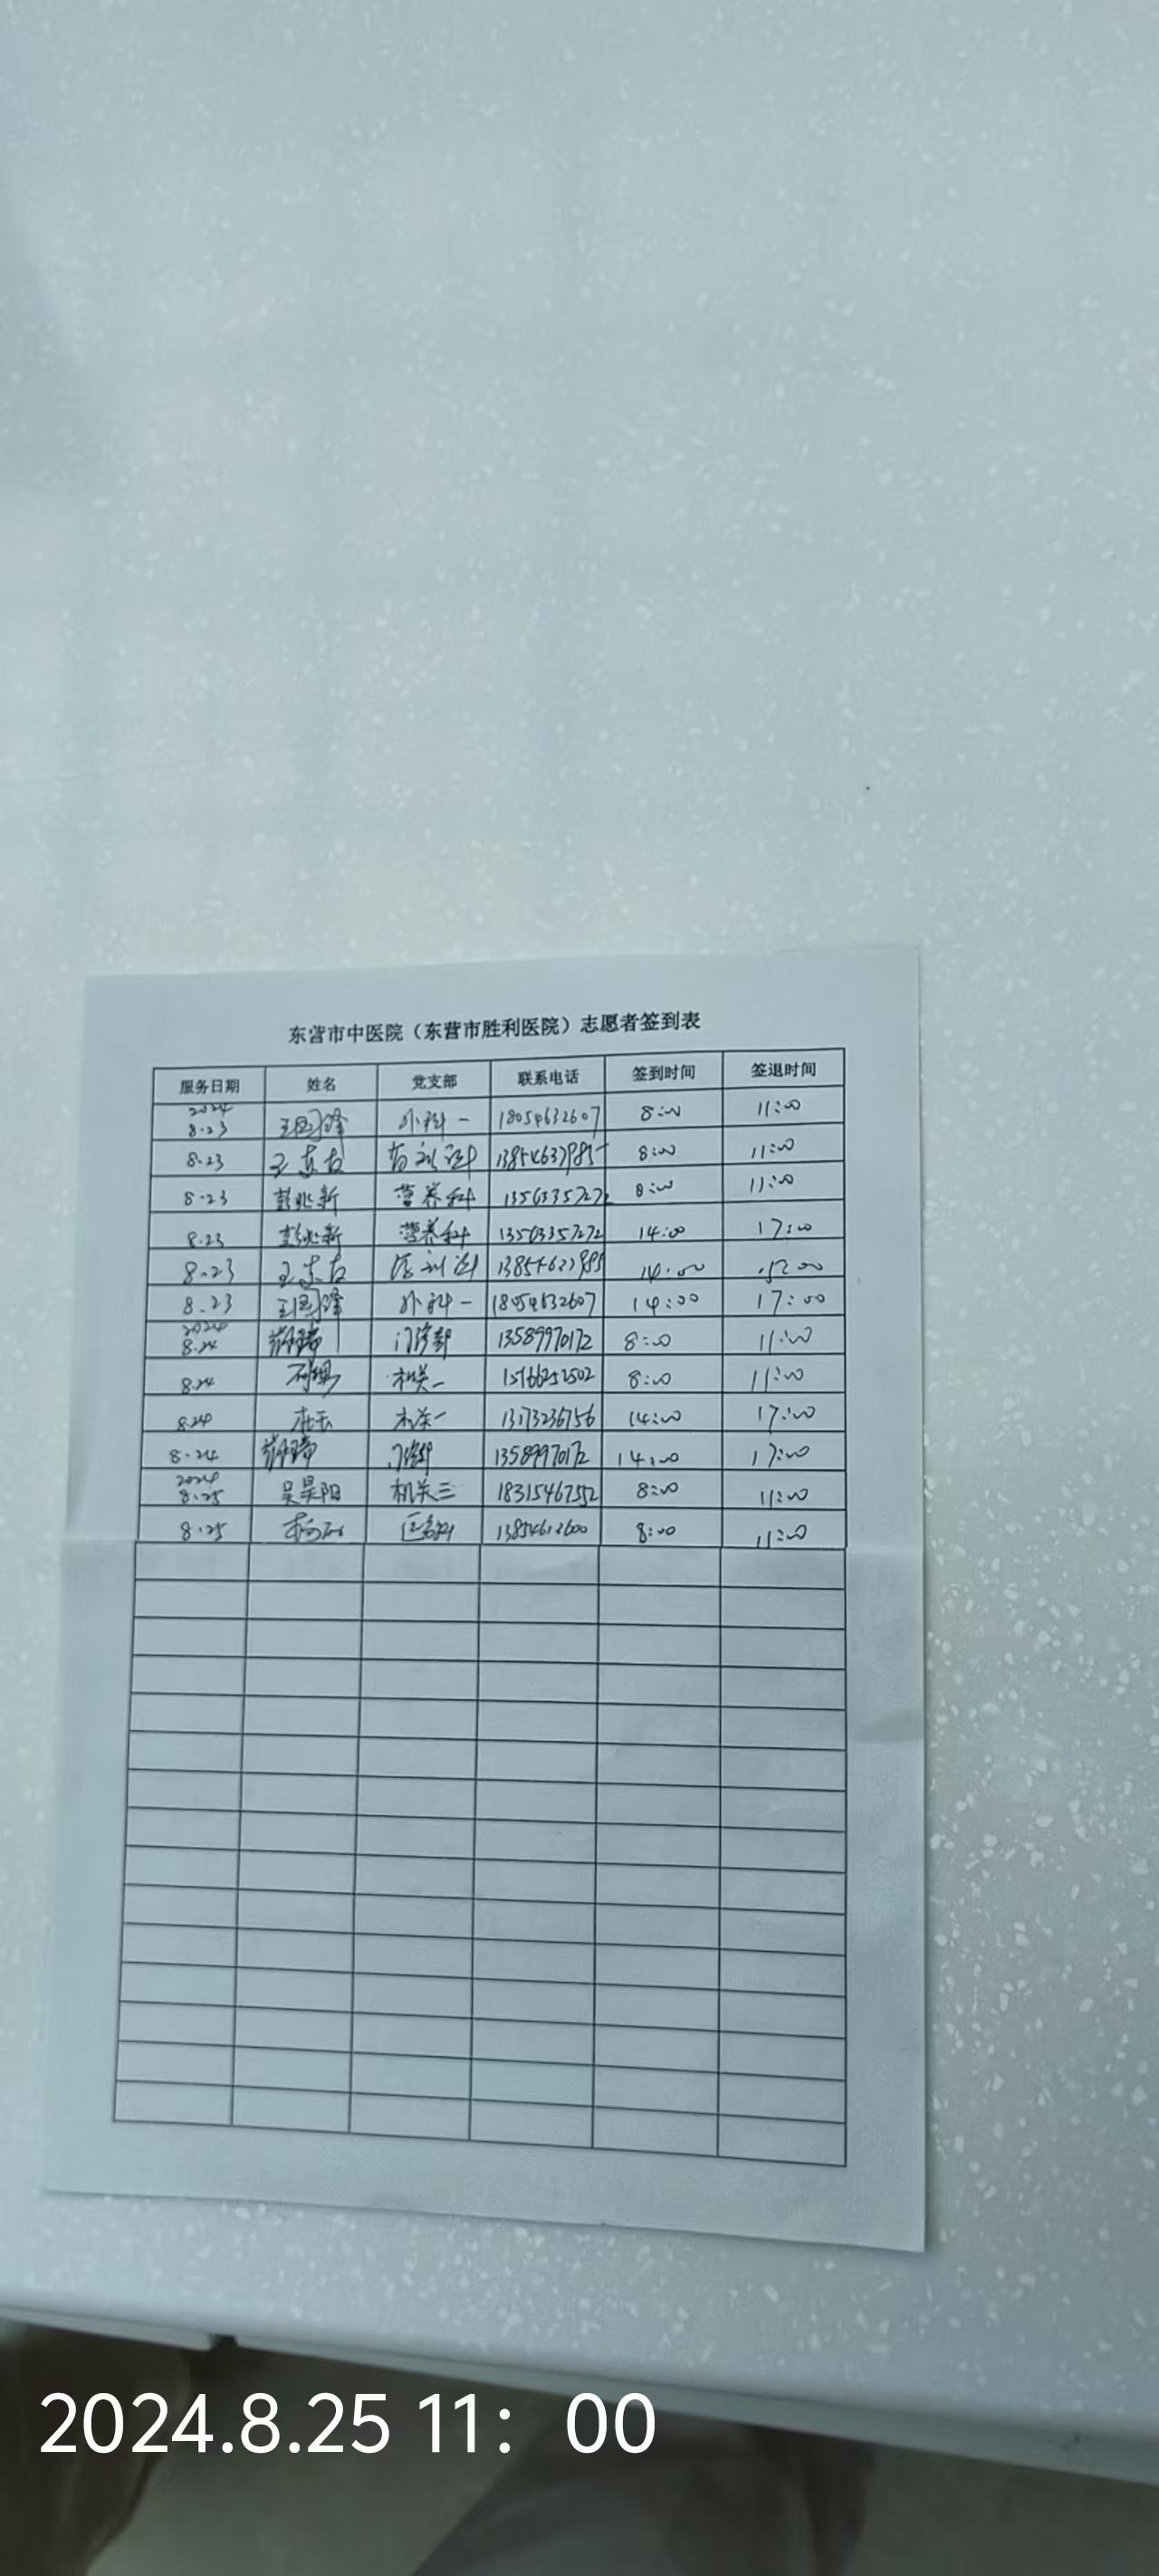 东营市中医院（东营市胜利医院）志愿者签到表
服务日期 姓名 党支部 联系电话 签到时间 签退时间
2024 8.23 王国锋 外科一 18054632607 8:00 11:00
8.23 王东 8:00 11:00
8.23 彭兆新 营养科 13563357272 8:00 11:00
8.23 彭兆新 营养科 13563357272 14:00 17:00
8.23 王东 14:00
8.23 王国锋 外科一 18054632607 14:00 17:00
2024 8.24 门诊部 13589970172 8:00 11:00
8.24 机关一 15166252502 8:00 11:00
8.24 机关一 13173236756 14:00 17:00
8.24 门诊部 13589970172 14:00 17:00
2024 8.25 吴昊阳 机关三 18315467552 8:00 11:00
8.25 8:00 11:00
2024.8.25 11：00